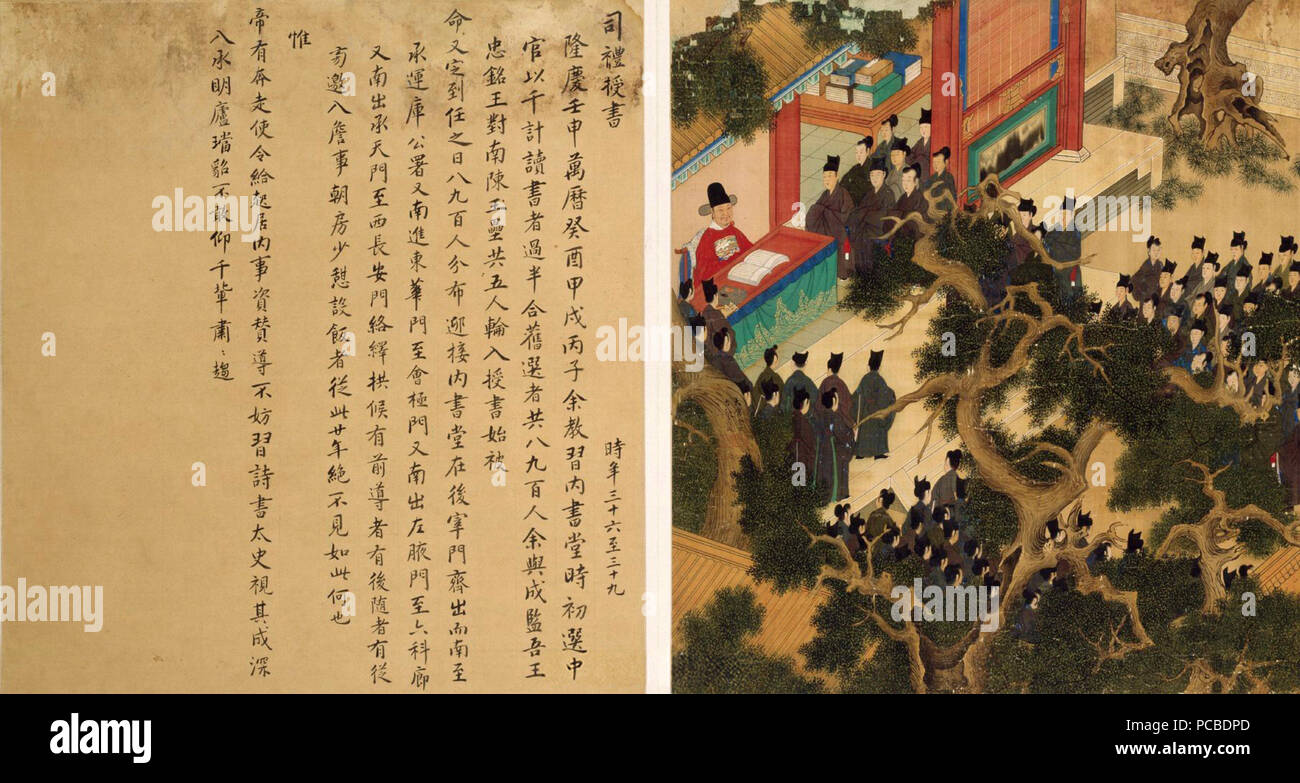 司禮授書
時年三十六至三十九
隆慶壬申萬曆癸酉甲戌丙子余教習內書堂時初選中
官以千計讀書者過半合舊選者共八九百人余與成監吾王
忠銘王對南陳玉壘共五人輪入授書始被
命又定到任之日八九百人分布迎接內書堂在後宰門齊出而南至
承運庫公署又南進東華門至會極門又南出左腋門至六科廊
又南出承天門至西長安門絡繹拱候有前導者有後隨者有從
旁邀入詹事朝房少憩設飯者從此廿年絕不見如此何也
惟
帝有奔走使令給起居內事資贊導不妨習詩書太史視其成深
入承明廬璫貂不敢仰千輩肅〻趨
alamy
alamy
Image ID: PCBDPD
www.alamy.com